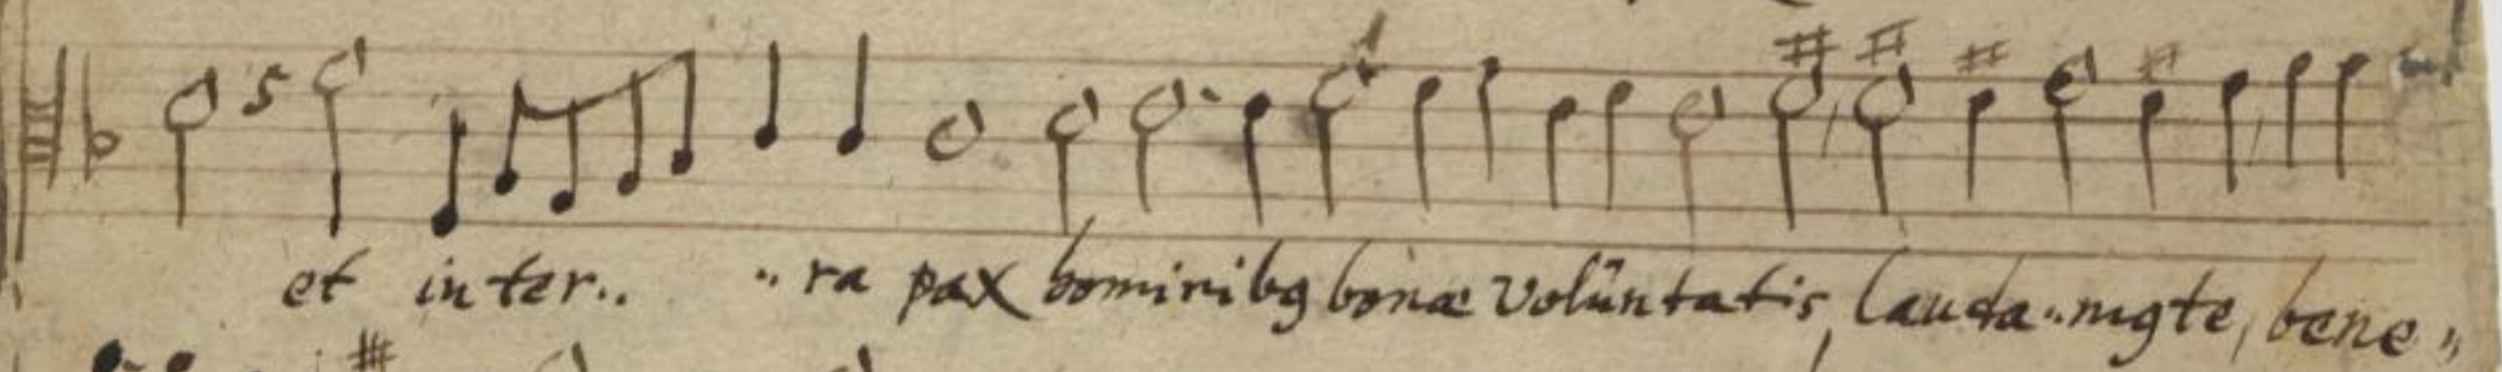 et in ter.. .. ra pax hominibꝰ bonæ volũntatis, lauda..mꝰ te, bene„